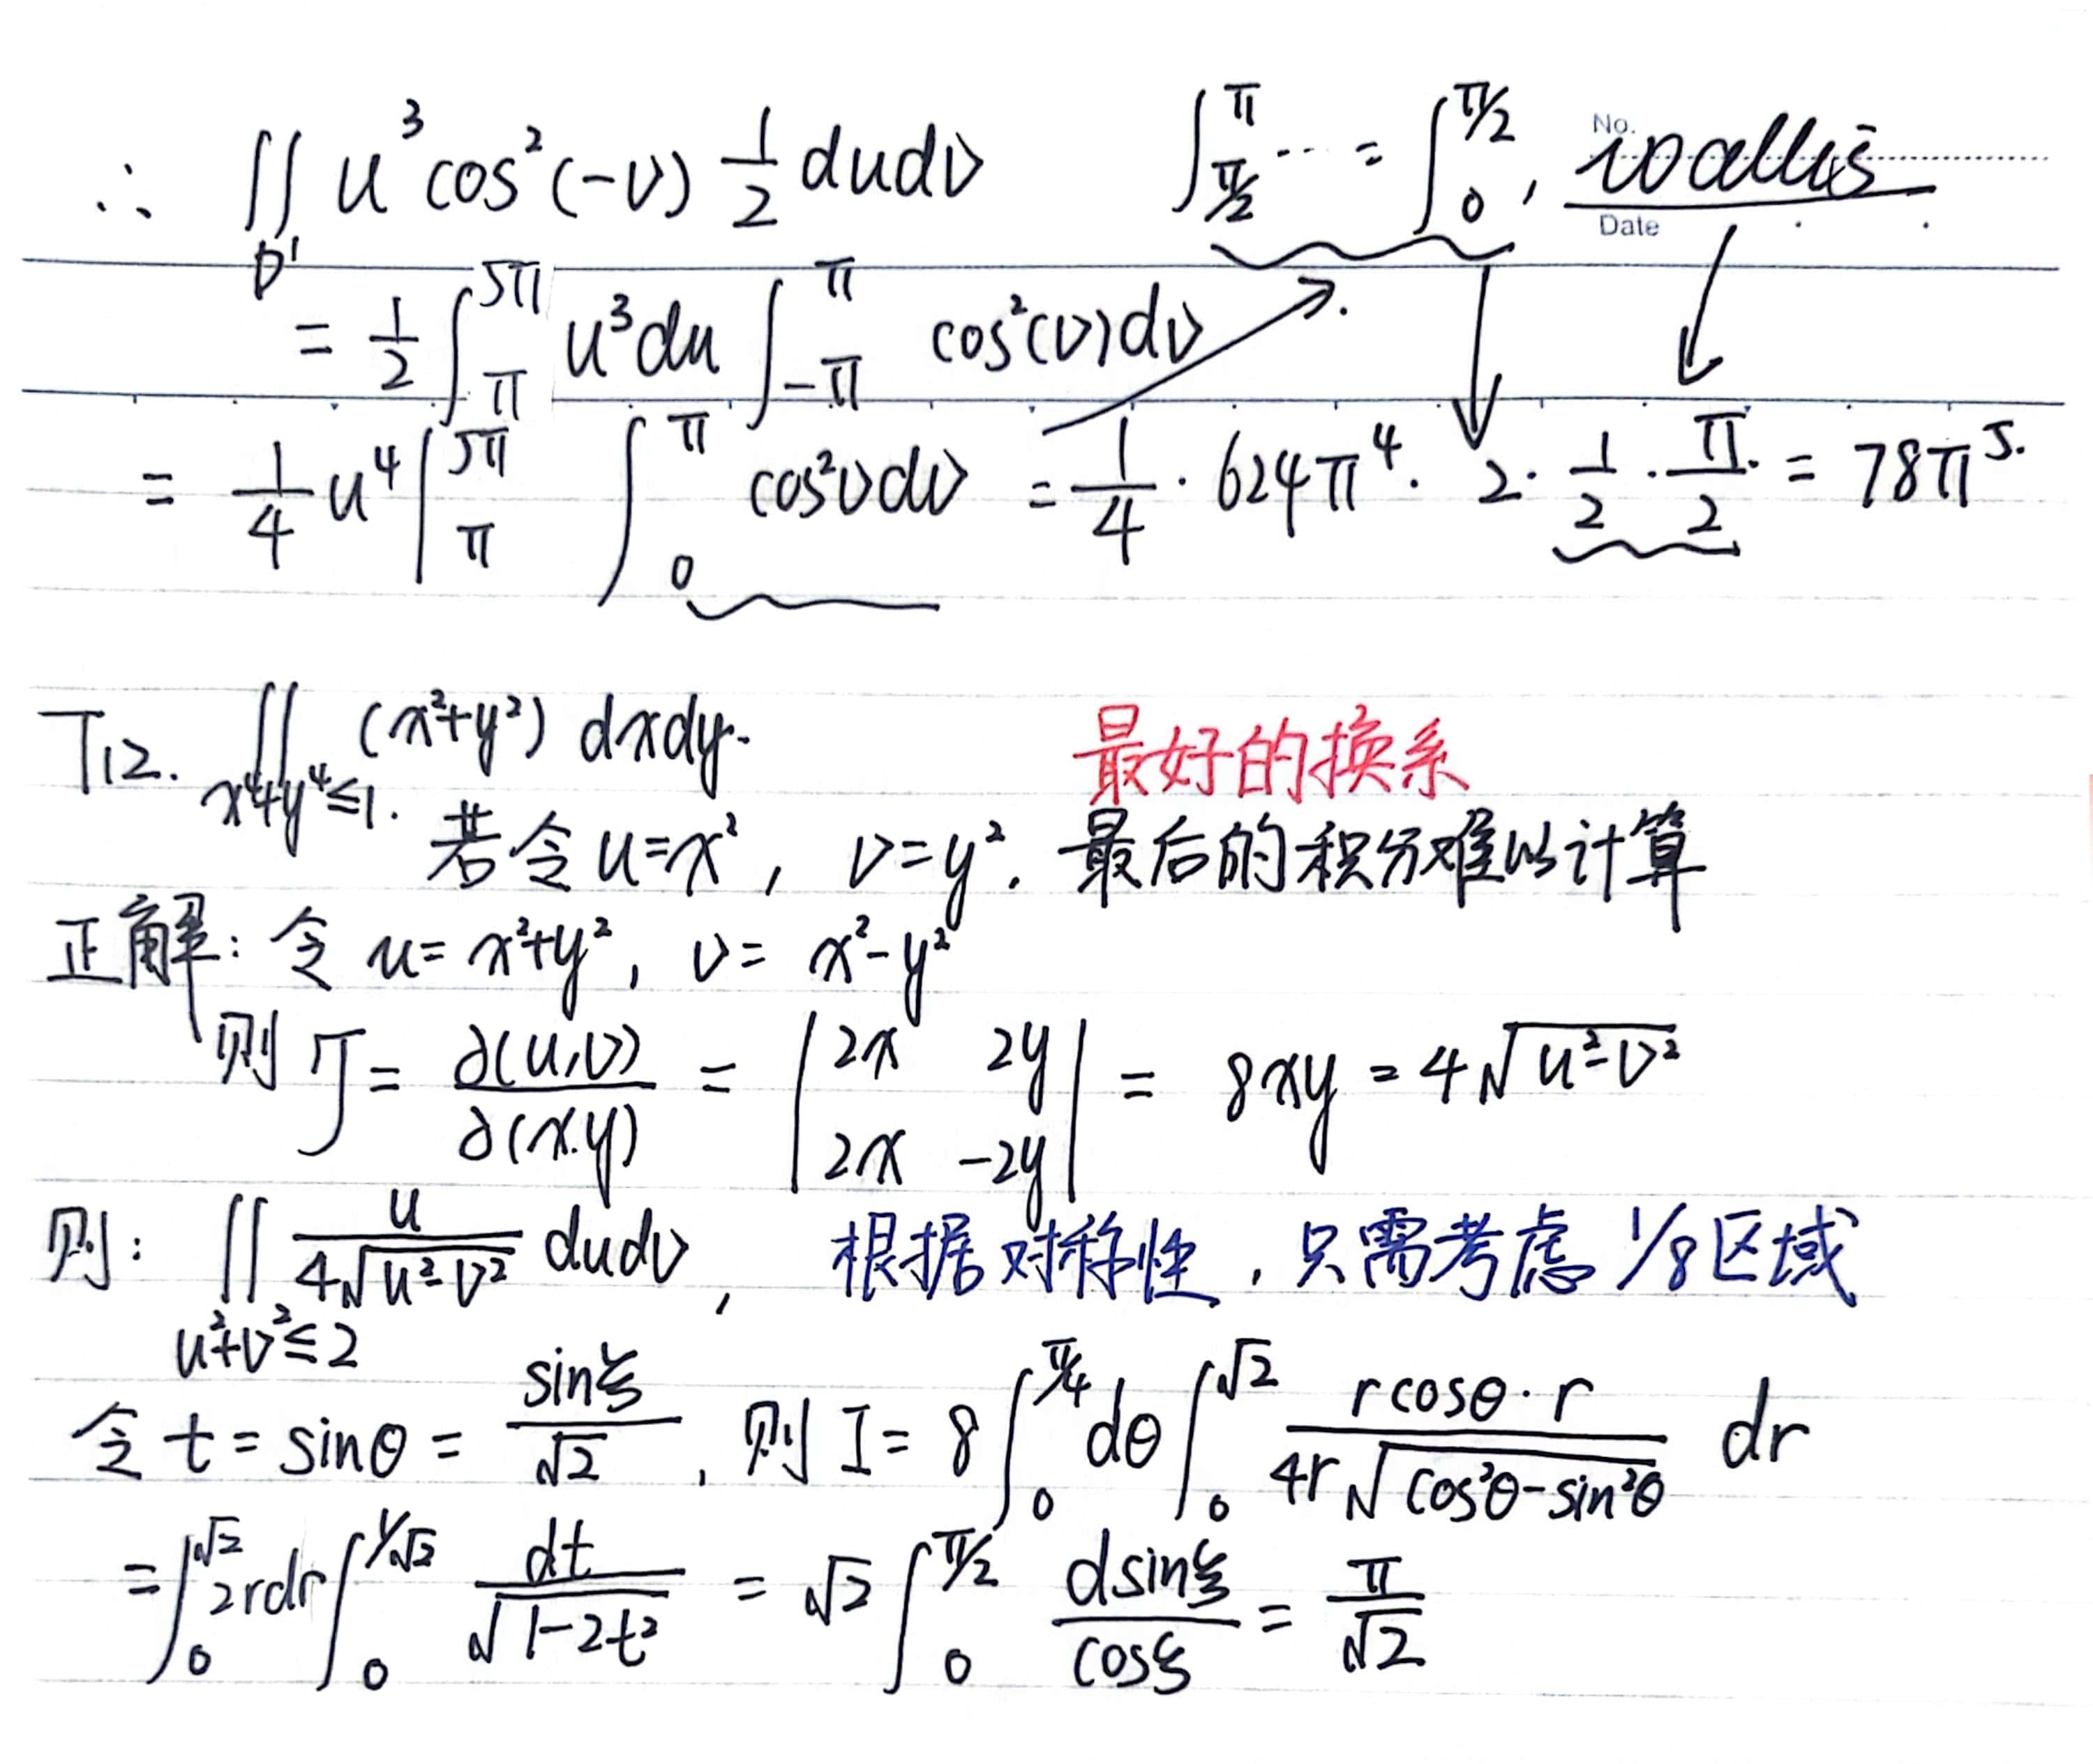 ∴ ∬_{D'} u³cos²(-v) 1/2 dudv   ∫_{π/2}^{π} ⋯ = ∫_0^{π/2}, wallis
No.
Date
= 1/2 ∫_π^{5π} u³du ∫_{-π}^{π} cos²(v)dv
= 1/4 u⁴|_π^{5π} ∫_0^π cos²vdv = 1/4 · 624π⁴ · 2 · 1/2 · π/2 = 78π⁵.
T12. ∬_{x⁴+y⁴≤1.} (x²+y²) dxdy. 最好的换系
若令 u=x², v=y². 最后的积分难以计算
正解: 令 u= x²+y², v= x²-y²
则 J = ∂(u,v)/∂(x.y) = |2x 2y; 2x -2y| = 8xy = 4√(u²-v²)
则: ∬_{u²+v²≤2} u/(4√(u²-v²)) dudv, 根据对称性, 只需考虑 1/8区域
令 t = sinθ = sinξ/√2, 则 I = 8∫_0^{π/4} dθ ∫_0^{√2} (rcosθ·r)/(4r√(cos²θ-sin²θ)) dr
= ∫_0^{√2} 2rdr ∫_0^{1/√2} dt/√(1-2t²) = √2 ∫_0^{π/2} dsinξ/cosξ = π/√2